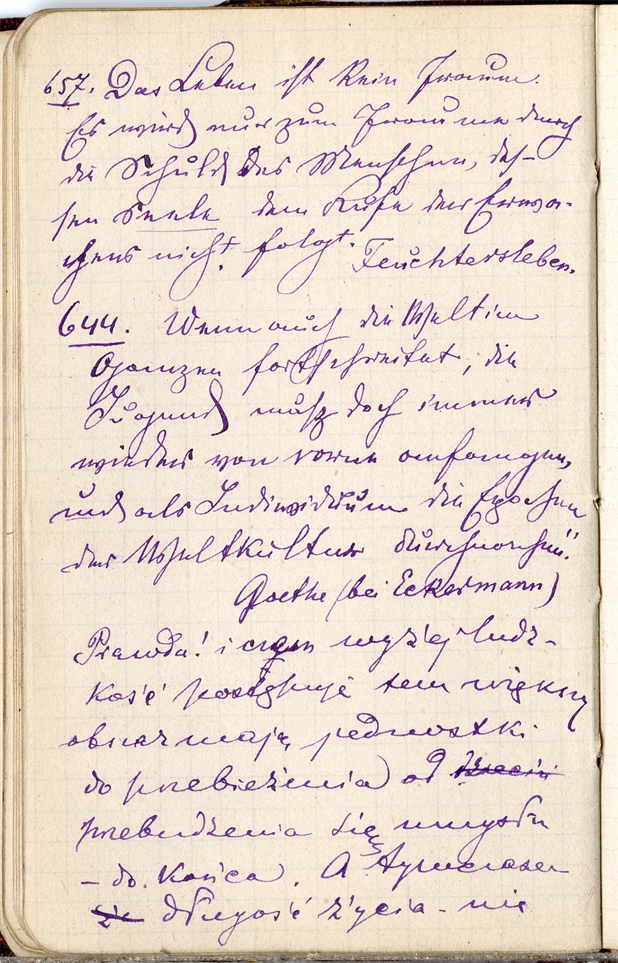 657. Das Leben ist kein Traum.
Es wird nur zum Traume durch
die Schuld des Menschen, des-
sen Seele dem Rufe des Erwa-
chens nicht folgt. Feuchtersleben.
644. Wenn auch die Welt im
Ganzen fortschreitet, die
Jugend muß doch immer
wieder von vorne anfangen,
und als Individuum die Epochen
der Weltkultur durchmachen.
Goethe (bei Eckermann)
Prawda! i czem wyżej ludz-
kość postępuje tem większy
obszar mają jednostki
do przebieżenia od
przebudzenia się umysłu
– do końca. A tymczasem
długość życia – nie